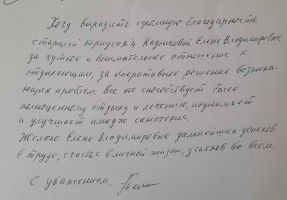 Хочу выразить огромную благодарность
старшей корпуса 4 Кадничовой Елене Владимировне
за чуткое и внимательное отношение к
отдыхающим, за оперативное решение возника-
ющих проблем. Все это способствует более
полноценному отдыху и лечению, поднимает
и улучшает имидж санатория.
Желаю Елене Владимировне дальнейших успехов
в труде, счастья в личной жизни, успехов во всем.
С уважением,